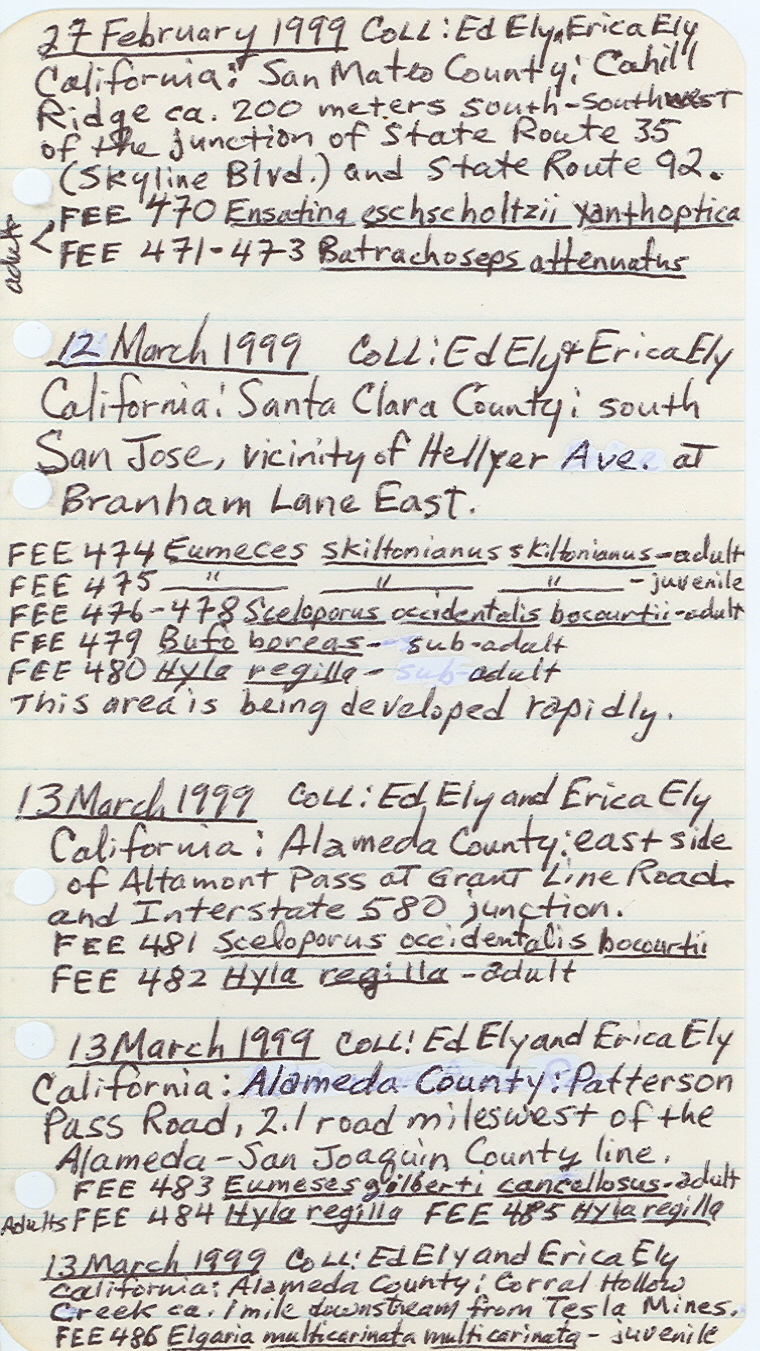 27 February 1999 COLL: Ed Ely, Erica Ely
California: San Mateo County: Cahill
Ridge ca. 200 meters south-southwest
of the junction of State Route 35
(Skyline Blvd.) and State Route 92.
adults < FEE 470 Ensatina eschscholtzii xanthoptica
FEE 471-473 Batrachoseps attenuatus
12 March 1999 COLL: Ed Ely + Erica Ely
California: Santa Clara County: south
San Jose, vicinity of Hellyer Ave. at
Branham Lane East.
FEE 474 Eumeces skiltonianus skiltonianus-adult
FEE 475 " " " - juvenile
FEE 476-478 Sceloporus occidentalis bocourtii-adult
FEE 479 Bufo boreas- sub-adult
FEE 480 Hyla regilla - sub-adult
This area is being developed rapidly.
13 March 1999 COLL: Ed Ely and Erica Ely
California: Alameda County: east side
of Altamont Pass at Grant Line Road
and Interstate 580 junction.
FEE 481 Sceloporus occidentalis bocourtii
FEE 482 Hyla regilla - adult
13 March 1999 COLL: Ed Ely and Erica Ely
California: Alameda County: Patterson
Pass Road, 2.1 road miles west of the
Alameda-San Joaquin County line.
FEE 483 Eumeses gilberti cancellosus-adult
Adults FEE 484 Hyla regilla FEE 485 Hyla regilla
13 March 1999 COLL: Ed Ely and Erica Ely
California: Alameda County: Corral Hollow
Creek ca. 1 mile downstream from Tesla Mines.
FEE 486 Elgaria multicarinata multicarinata - juvenile